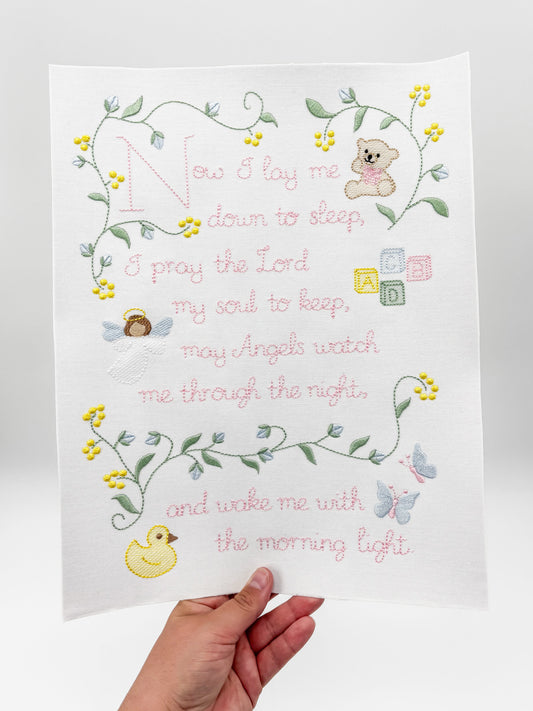 Now I lay me
down to sleep,
I pray the Lord
my soul to keep,
may Angels watch
me through the night,
and wake me with
the morning light.
C B
A D